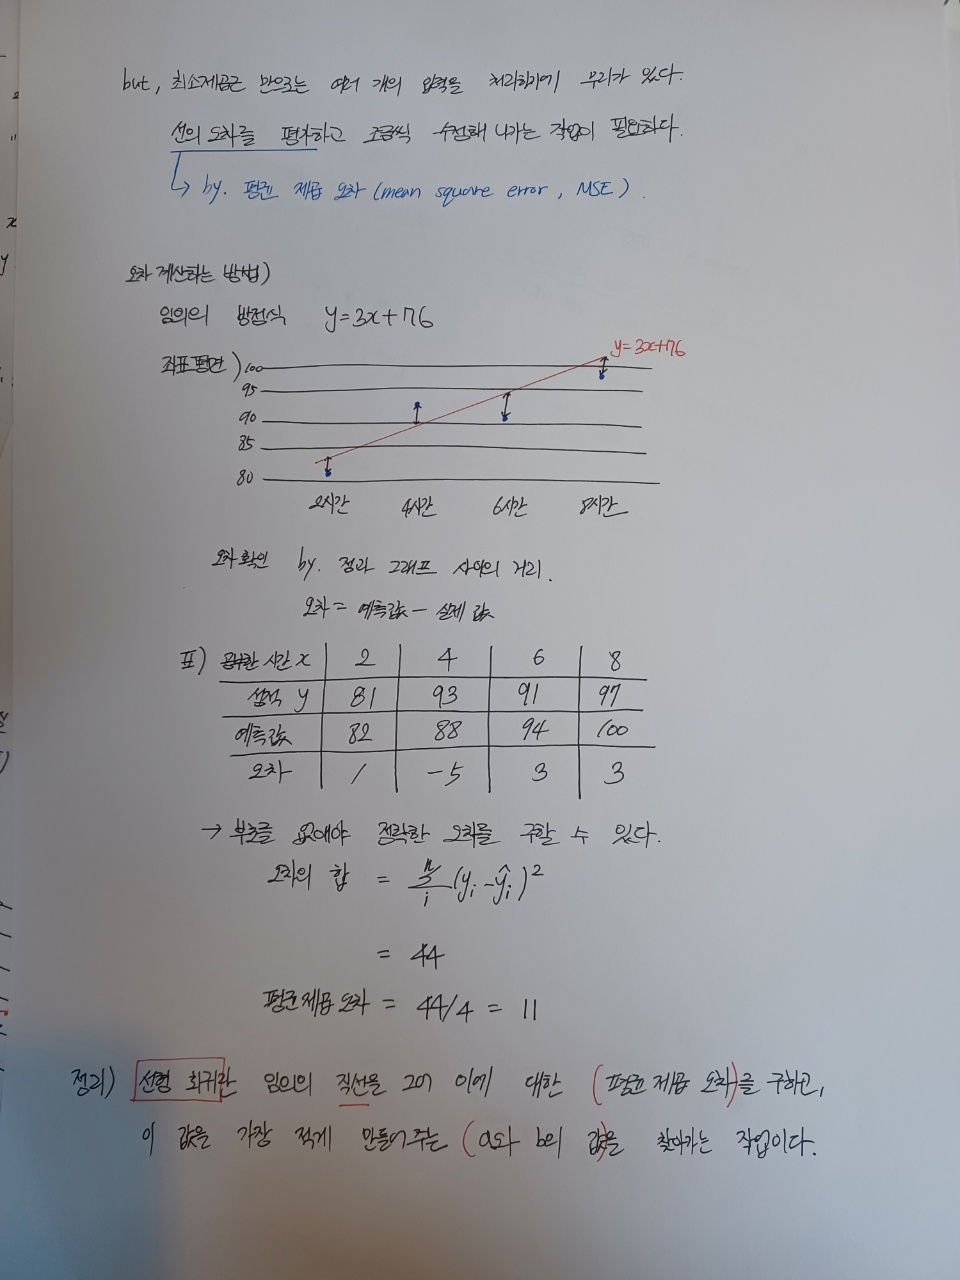 but, 최소제곱근 만으로는 여러 개의 입력을 처리하기에 무리가 있다.
선의 오차를 평가하고 조금씩 수정해 나가는 작업이 필요하다.
↳ by. 평균 제곱 오차 (mean square error, MSE).
오차 계산하는 방법)
임의의 방정식 y=3x+76
좌표평면)
y=3x+76
100
95
90
85
80
2시간 4시간 6시간 8시간
오차 확인 by. 점과 그래프 사이의 거리.
오차 = 예측값 - 실제 값
표) 공부한 시간 x 2 4 6 8
성적 y 81 93 91 97
예측값 82 88 94 100
오차 1 -5 3 3
→ 부호를 없애야 정확한 오차를 구할 수 있다.
오차의 합 = Σ_i^n (y_i - ŷ_i)²
= 44
평균 제곱 오차 = 44/4 = 11
정리) 선형 회귀란 임의의 직선을 그어 이에 대한 (평균 제곱 오차)를 구하고,
이 값을 가장 적게 만들어주는 (a와 b의 값)을 찾아가는 작업이다.
x
y